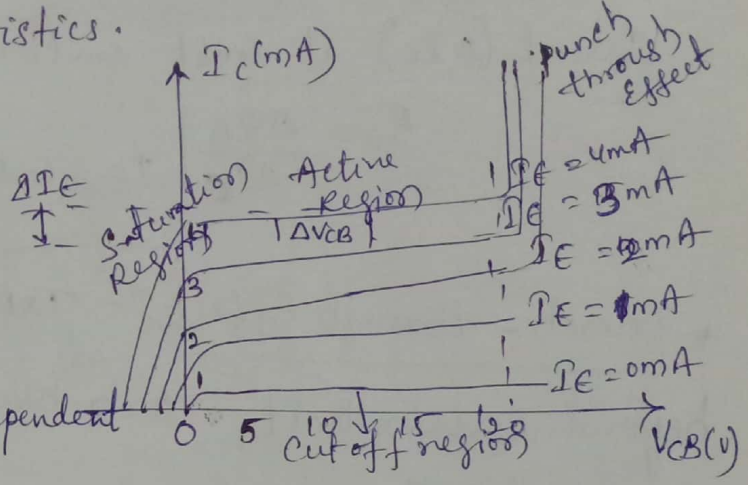 istics.
Ic (mA)
punch
through
Effect
ΔIE
Saturation
Region
Active
Region
ΔVCB
IE = 4mA
IE = 3mA
IE = 2mA
IE = 1mA
IE = 0mA
3
2
1
pendent
0 5 10 15 20
Cut off region
VCB(V)